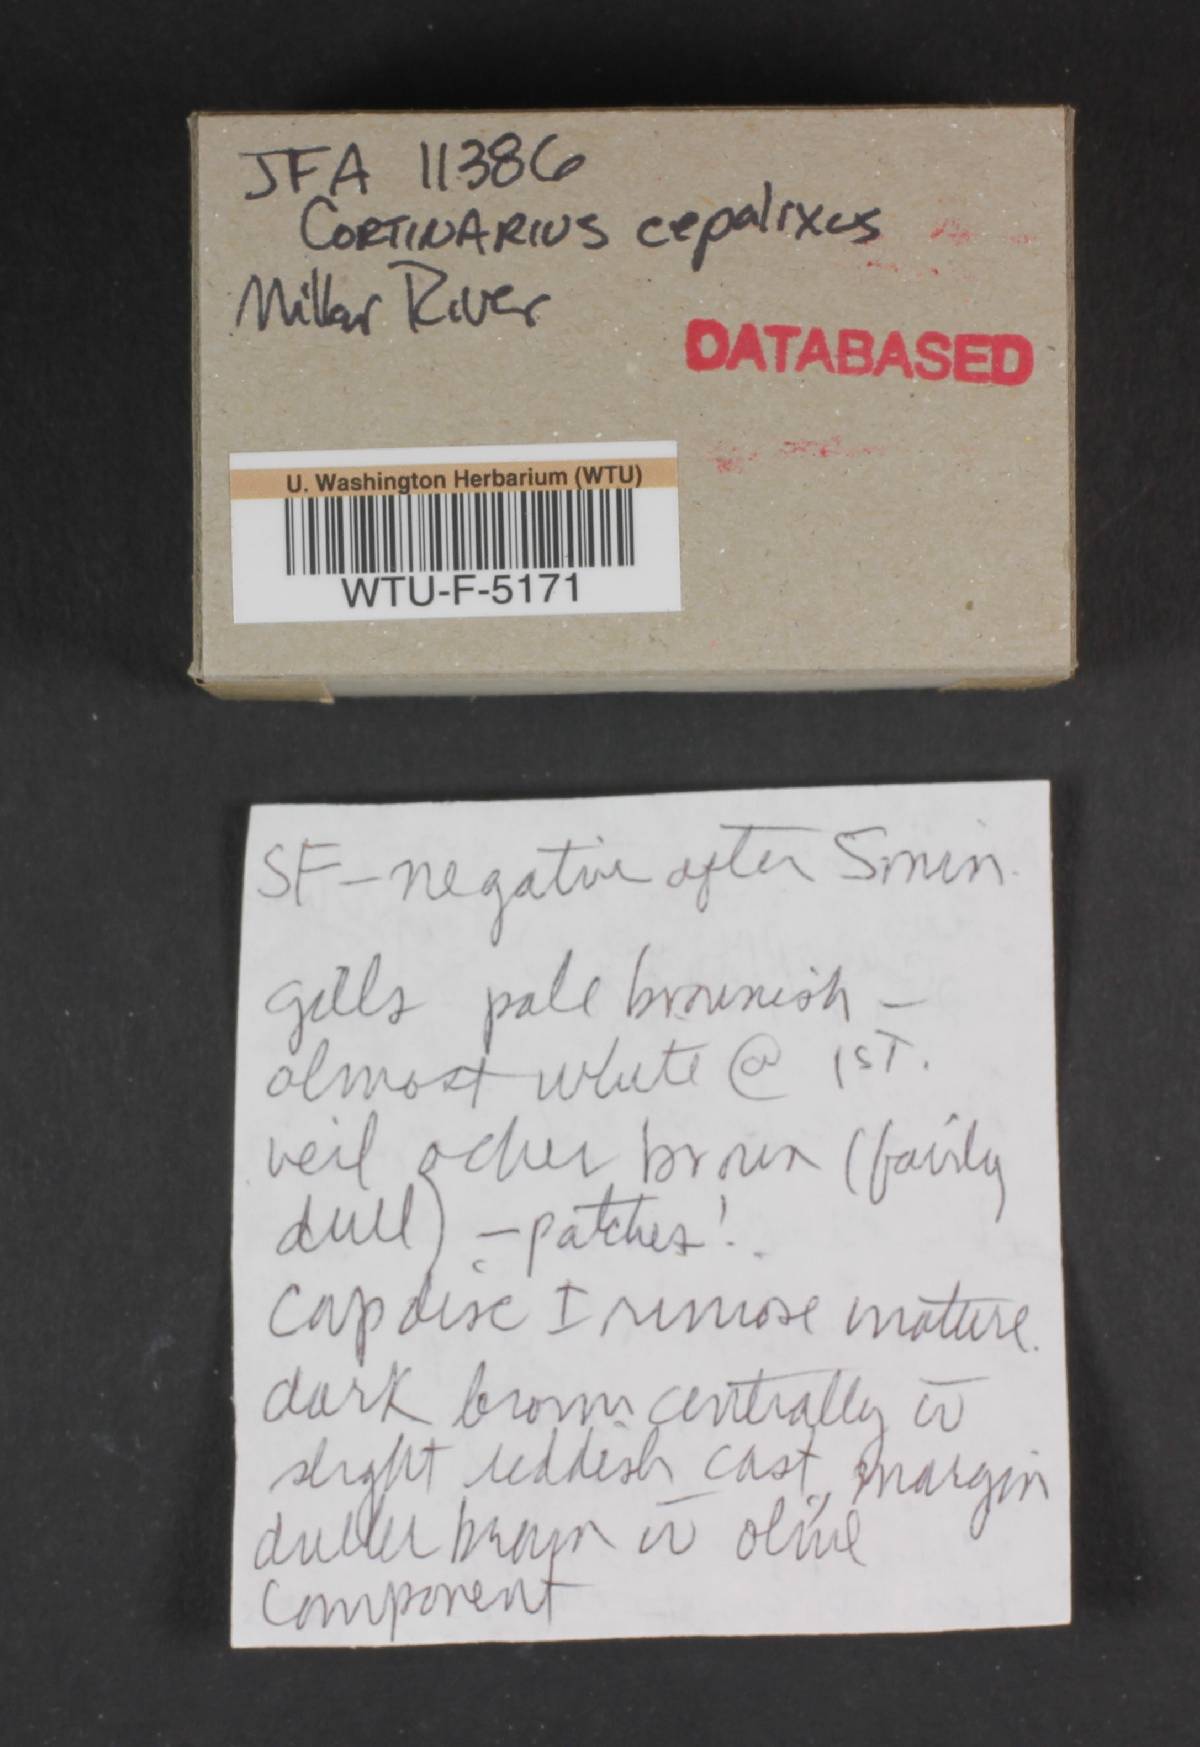 JFA 11386
CORTINARIUS cepalixus
Miller River
DATABASED
U. Washington Herbarium (WTU)
WTU-F-5171
SF-negative after 5min.
gills pale brownish -
almost white @ 1ST.
veil ocher brown (fairly
dull) - patches!
Cap disc ± rimose mature.
dark brown centrally w̄
slight reddish cast, margin
duller brown w̄ olive
component